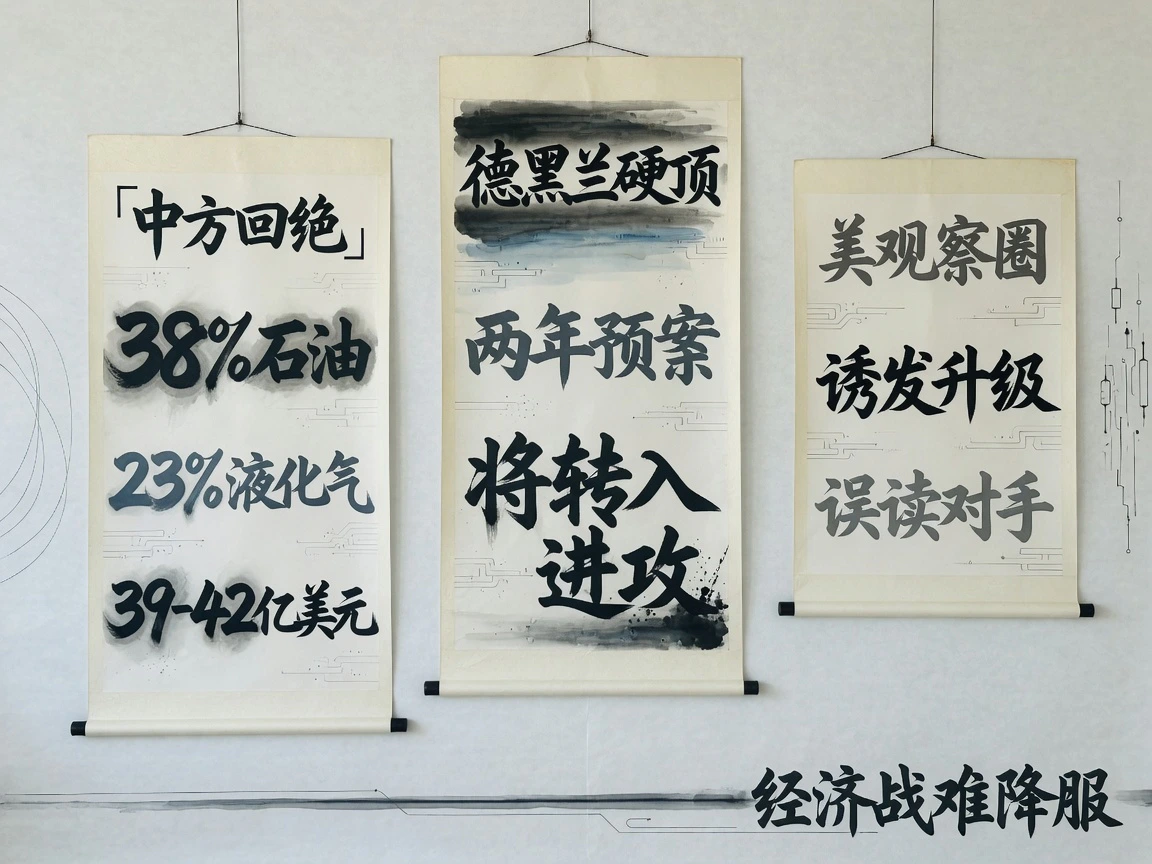 「中方回绝」
38%石油
23%液化气
39-42亿美元
德黑兰硬顶
两年预案
将转入
进攻
美观察圈
诱发升级
误读对手
经济战难降服